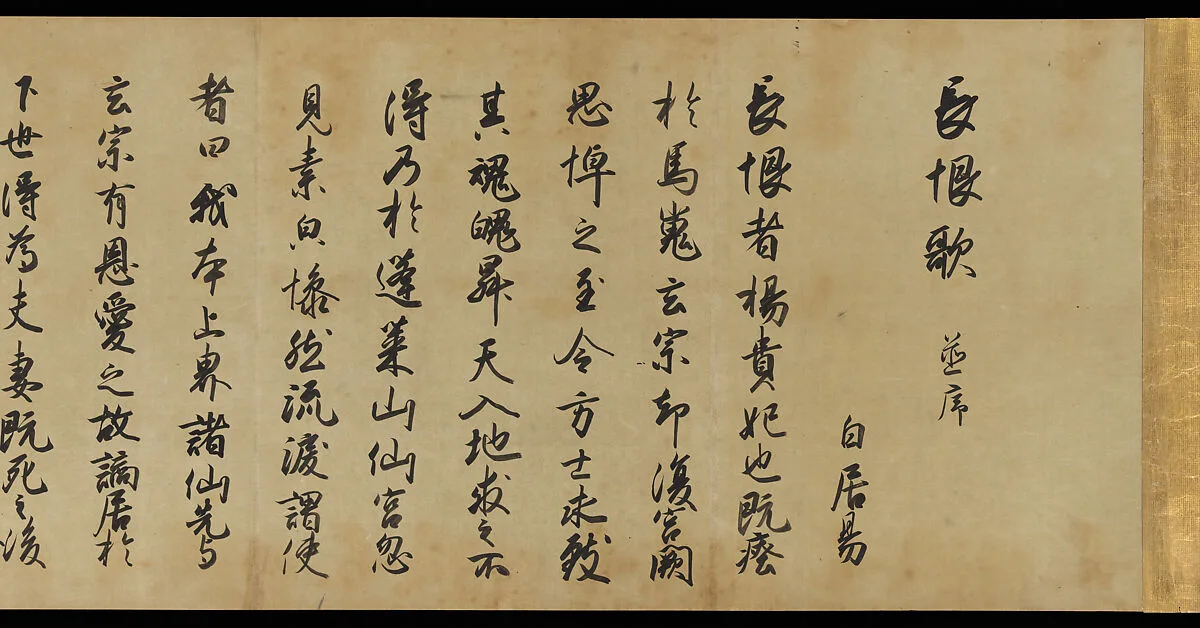 長恨歌 並序
白居易
長恨者楊貴妃也既瘞
於馬嵬玄宗却復宮闕
思悼之至令方士求致
其魂魄昇天入地求之不
得乃於蓬萊山仙宮忽
見素皃慘然流淚謂使
者曰我本上界諸仙先与
玄宗有恩愛之故謫居於
下世得為夫妻既死之後